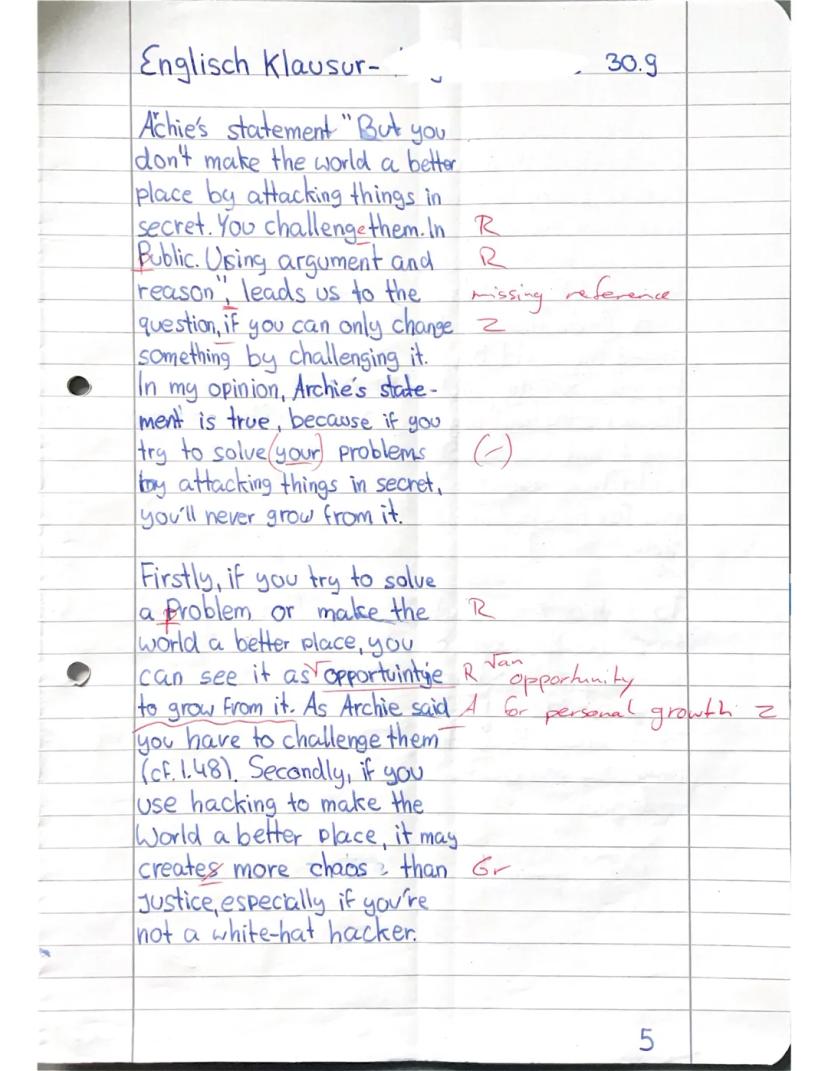 Englisch Klausur- 30.9
Archie's statement "But you
don't make the world a better
place by attacking things in
secret. You challenge them. In R
Public. Using argument and R
reason", leads us to the missing reference
question, if you can only change Z
something by challenging it.
In my opinion, Archie's state-
ment is true, because if you
try to solve (your) problems (-)
by attacking things in secret,
you'll never grow from it.
Firstly, if you try to solve
a Problem or make the R
world a better place, you
can see it as √ opportuintje R √an opportunity
to grow from it. As Archie said A for personal growth Z
you have to challenge them
(cf. l.48). Secondly, if you
use hacking to make the
World a better place, it may
creates more chaos than Gr
Justice, especially if you're
not a white-hat hacker.
5